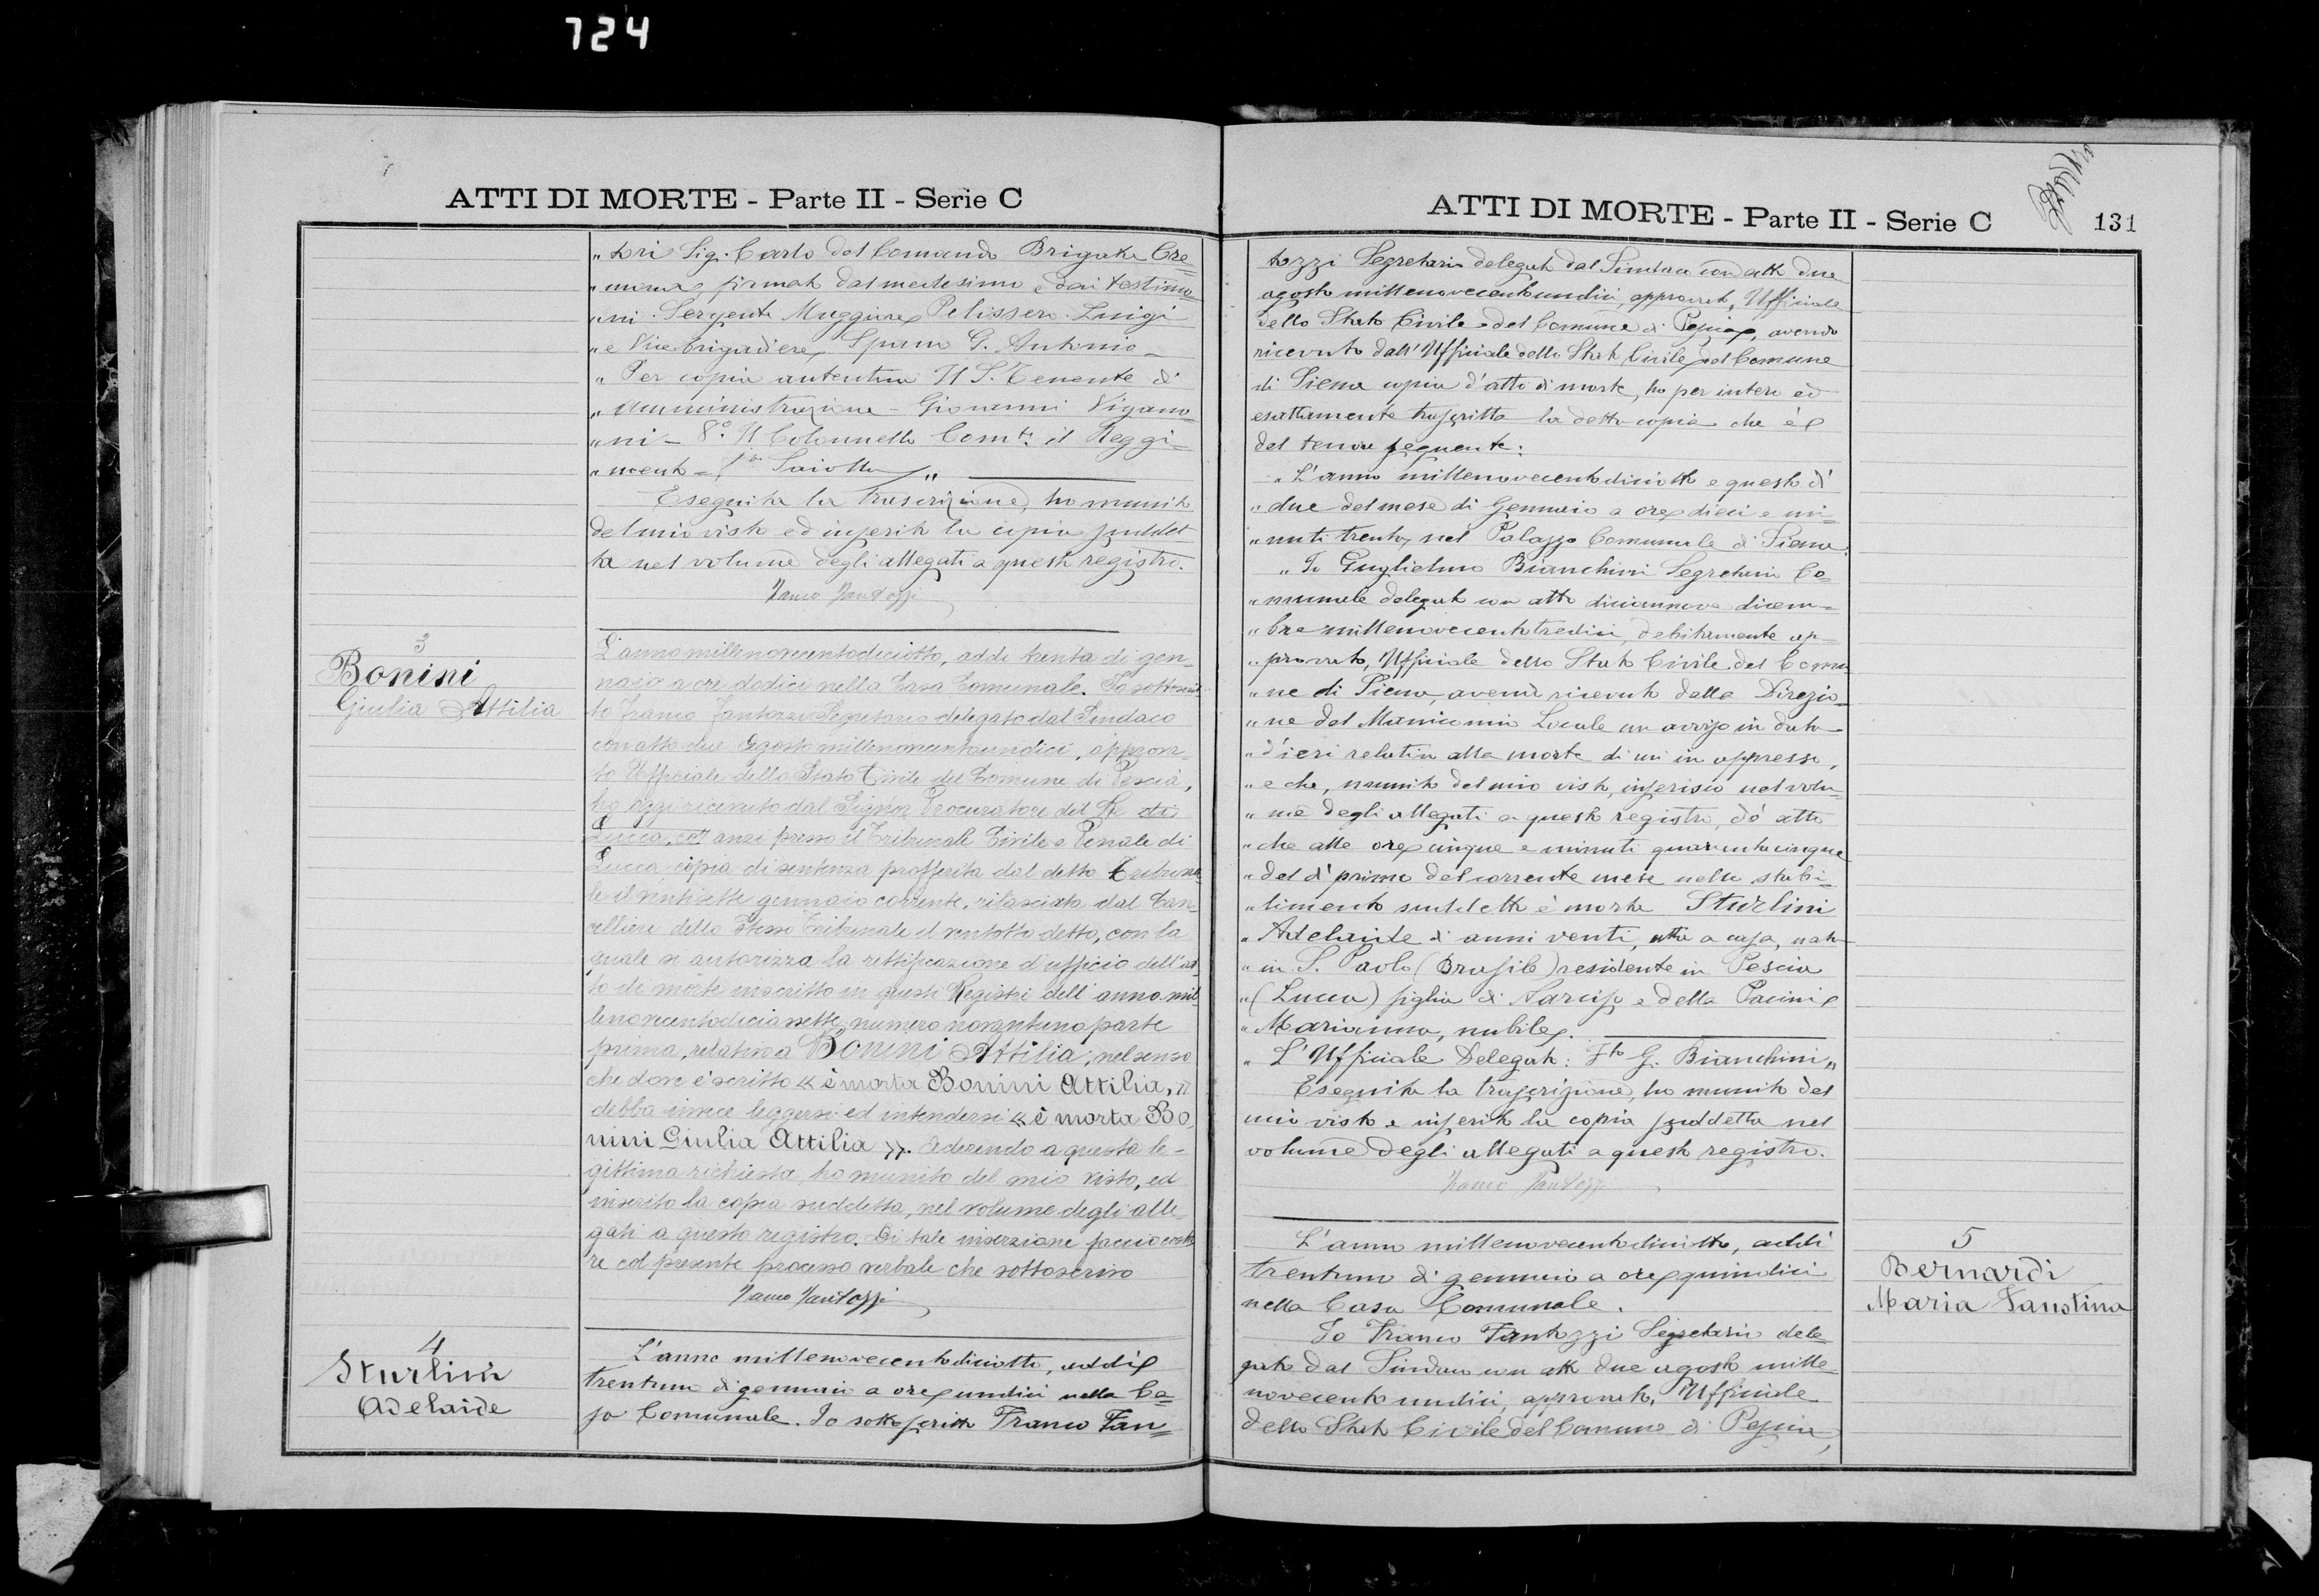 724
ATTI DI MORTE - Parte II - Serie C
„ tori Sig. Carlo del Comando Brigata Cre=
„ mona, firmato dal medesimo e dai testimo=
„ ni Sergente Maggiore Pelissero Luigi
„ e Vice brigadiere Spano G. Antonio -
„ Per copia autentica Il S. Tenente d'
„ Amministrazione - Giovanni Vigano=
„ ni - V° Il Colonnello Com.te il Reggi=
„ mento = f.to Saiotta „
Eseguita la trascrizione, ho munito
del mio visto ed inserito la copia suddet
ta nel volume degli allegati a questo registro.
Franco Fantozzi
3
Bonini
Giulia Attilia
L'anno millenovecentodiciotto, addi trenta di gen-
naio a ore dodici nella Casa Comunale. Io sottoscrit
to Franco Fantozzi Segretario delegato dal Sindaco
con atto due Agosto millenovecentoundici, approva-
to Ufficiale dello Stato Civile del Comune di Pescia,
ho oggi ricevuto dal Signor Procuratore del Re di
Lucca, anzi presso il Tribunale Civile e Penale di
Lucca copia di sentenza profferita dal detto Tribuna
le il ventisette gennaio corrente, rilasciata dal Can-
celliere dello stesso Tribunale il ventotto detto, con la
quale si autorizza la rettificazione d'ufficio dell'at
to di morte inscritto in questi Registri dell'anno mil
lenovecentodiciassette numero novantuno parte
prima, relativo a Bonini Attilia, nel senso
che dove è scritto « è morta Bonini Attilia, »
debba invece leggersi ed intendersi « è morta Bo
nini Giulia Attilia ». Aderendo a questa le-
gittima richiesta, ho munito del mio visto, ed
inserito la copia suddetta, nel volume degli alle-
gati a questo registro. Di tale inserzione faccio consta
re col presente processo verbale che sottoscrivo
Franco Fantozzi
4
Sturlini
Adelaide
L'anno millenovecentodiciotto, addi
trentuno di gennaio a ore undici nella Ca=
sa Comunale. Io sottoscritto Franco Fan=
ATTI DI MORTE - Parte II - Serie C
131
tozzi Segretario delegato dal Sindaco con atto due
agosto millenovecentoundici, approvato, Ufficiale
dello Stato Civile del Comune di Pescia, avendo
ricevuto dall'Ufficiale dello Stato Civile del Comune
di Siena copia d'atto di morte, ho per intero ed
esattamente trascritta la detta copia che è
del tenore seguente:
„ L'anno millenovecentodiciotto e questo dì
„ due del mese di Gennaio a ore dieci e mi=
„ nuti trenta, nel Palazzo Comunale di Siena.
„ Io Guglielmo Bianchini Segretario Co=
„ munale delegato con atto diciannove dicem=
„ bre millenovecentotredici, debitamente ap=
„ provato, Ufficiale dello Stato Civile del Comu
„ ne di Siena, avendo ricevuto dalla Direzio=
„ ne del Manicomio Locale un avviso in data
„ d'ieri relativo alla morte di cui in appresso,
„ e che, munito del mio visto, inserisco nel volu=
„ me degli allegati a questo registro, dò atto
„ che alle ore cinque e minuti quarantacinque
„ del dì primo del corrente mese nello stabi=
„ limento suddetto è morta Sturlini
„ Adelaide di anni venti, atta a casa, nata
„ in S. Paolo (Brasile) residente in Pescia
„ (Lucca) figlia di Narciso e della Pacini
„ Marianna, nubile.
„ L'Ufficiale Delegato: F.to G. Bianchini „
Eseguita la trascrizione, ho munito del
mio visto e inserito la copia suddetta nel
volume degli allegati a questo registro.
Franco Fantozzi
5
Bernardi
Maria Faustina
L'anno millenovecentodiciotto, addi
trentuno di gennaio a ore quindici
nella Casa Comunale.
Io Franco Fantozzi Segretario dele
gato dal Sindaco con atto due agosto mille=
novecentoundici, approvato, Ufficiale
dello Stato Civile del Comune di Pescia,